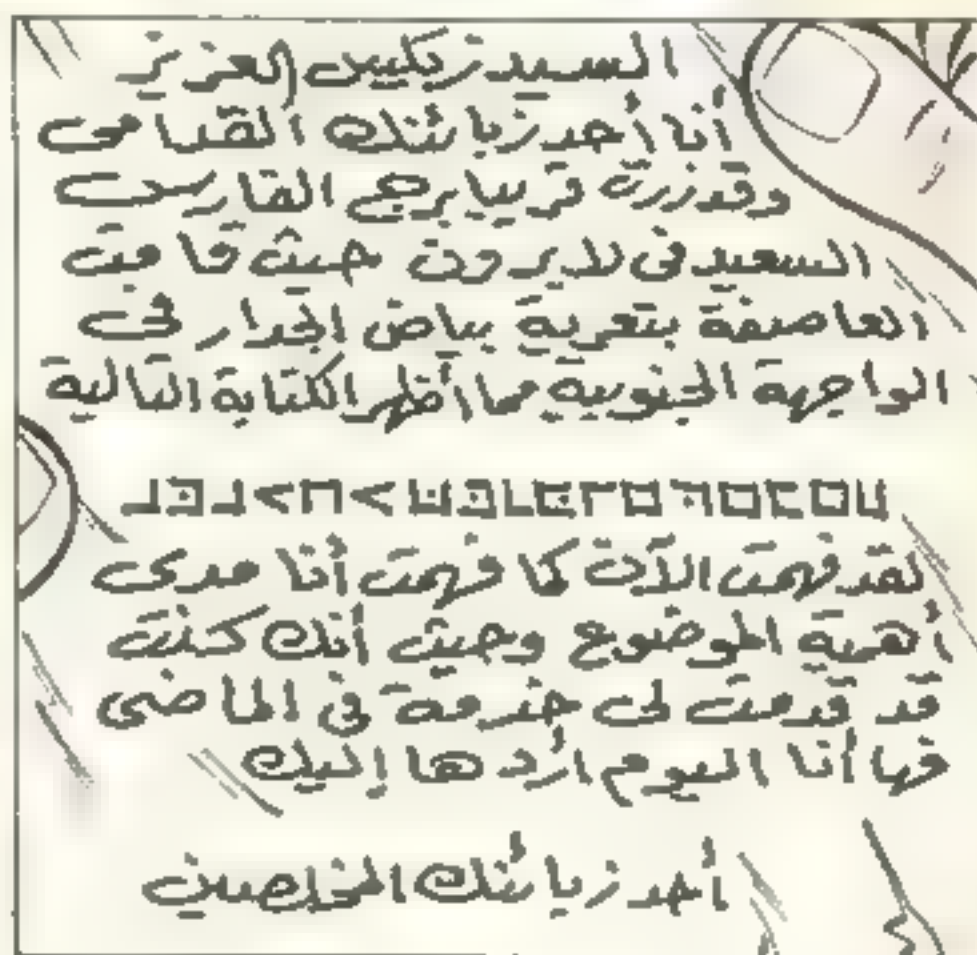 السيد زيكييس العزيز
أنا أحد زبائنك القدامى
وقد زرت قريبا برج الفارس
السعيد فى للديرون حيث قامت
العاصفة بتعرية بياض الجدار فى
الواجهة الجنوبية مما أظهر الكتابة التالية
لقد فهمت الآن كما فهمت أنا مدى
أهمية الموضوع وحيث أنك كنت
قد قدمت لى خدمة فى الماضى
فها أنا اليوم أرد ها إليك
أحد زبائنك المخلصين